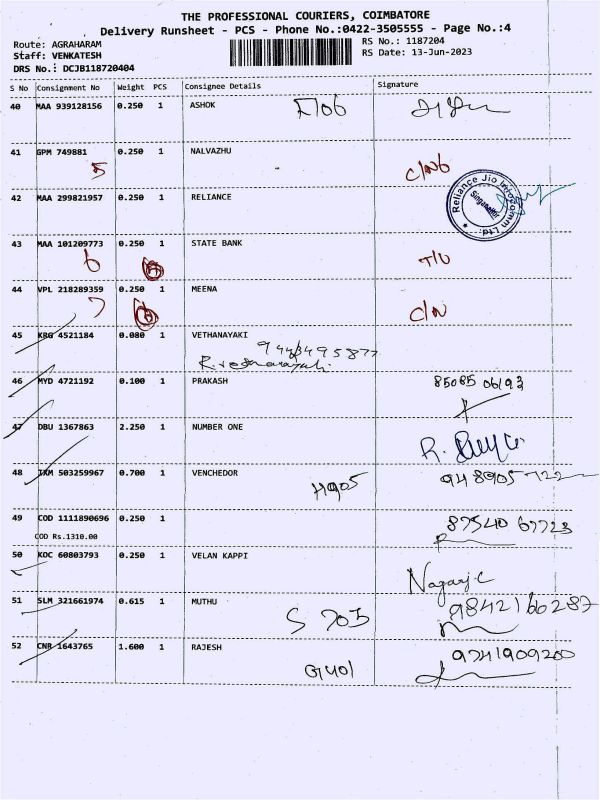 THE PROFESSIONAL COURIERS, COIMBATORE
Delivery Runsheet - PCS - Phone No.:0422-3505555 - Page No.:4
Route: AGRAHARAM
Staff: VENKATESH
DRS No.: DCJB118720404
RS No.: 1187204
RS Date: 13-Jun-2023
S No Consignment No Weight PCS Consignee Details Signature
40 MAA 939128156 0.250 1 ASHOK
41 GPM 749881 0.250 1 NALVAZHU
5 C/N6
42 MAA 299821957 0.250 1 RELIANCE
Reliance Jio Infocomm Ltd.
43 MAA 101209773 0.250 1 STATE BANK
6 T/U
44 VPL 218289359 0.250 1 MEENA
7 C/N
45 KRG 4521184 0.080 1 VETHANAYAKI
46 MYD 4721192 0.100 1 PRAKASH 85085 06193
47 DBU 1367863 2.250 1 NUMBER ONE
48 IXM 503259967 0.700 1 VENCHEDOR
H905 948905 722
49 COD 1111890696 0.250 1
COD Rs.1310.00 87540 67723
50 KOC 60803793 0.250 1 VELAN KAPPI
51 SLM 321661974 0.615 1 MUTHU
S 705 9842160287
52 CNR 1643765 1.600 1 RAJESH 9741909200
G401